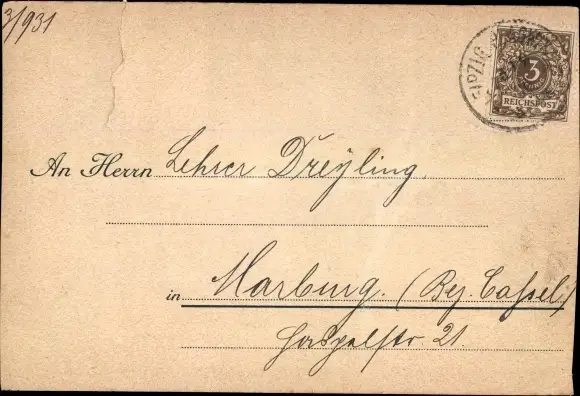 3/931
LEIPZIG
3
REICHSPOST
An Herrn Lehrer Dreyling.
in Marburg. (Bez. Cassel)
Haspelstr 21.